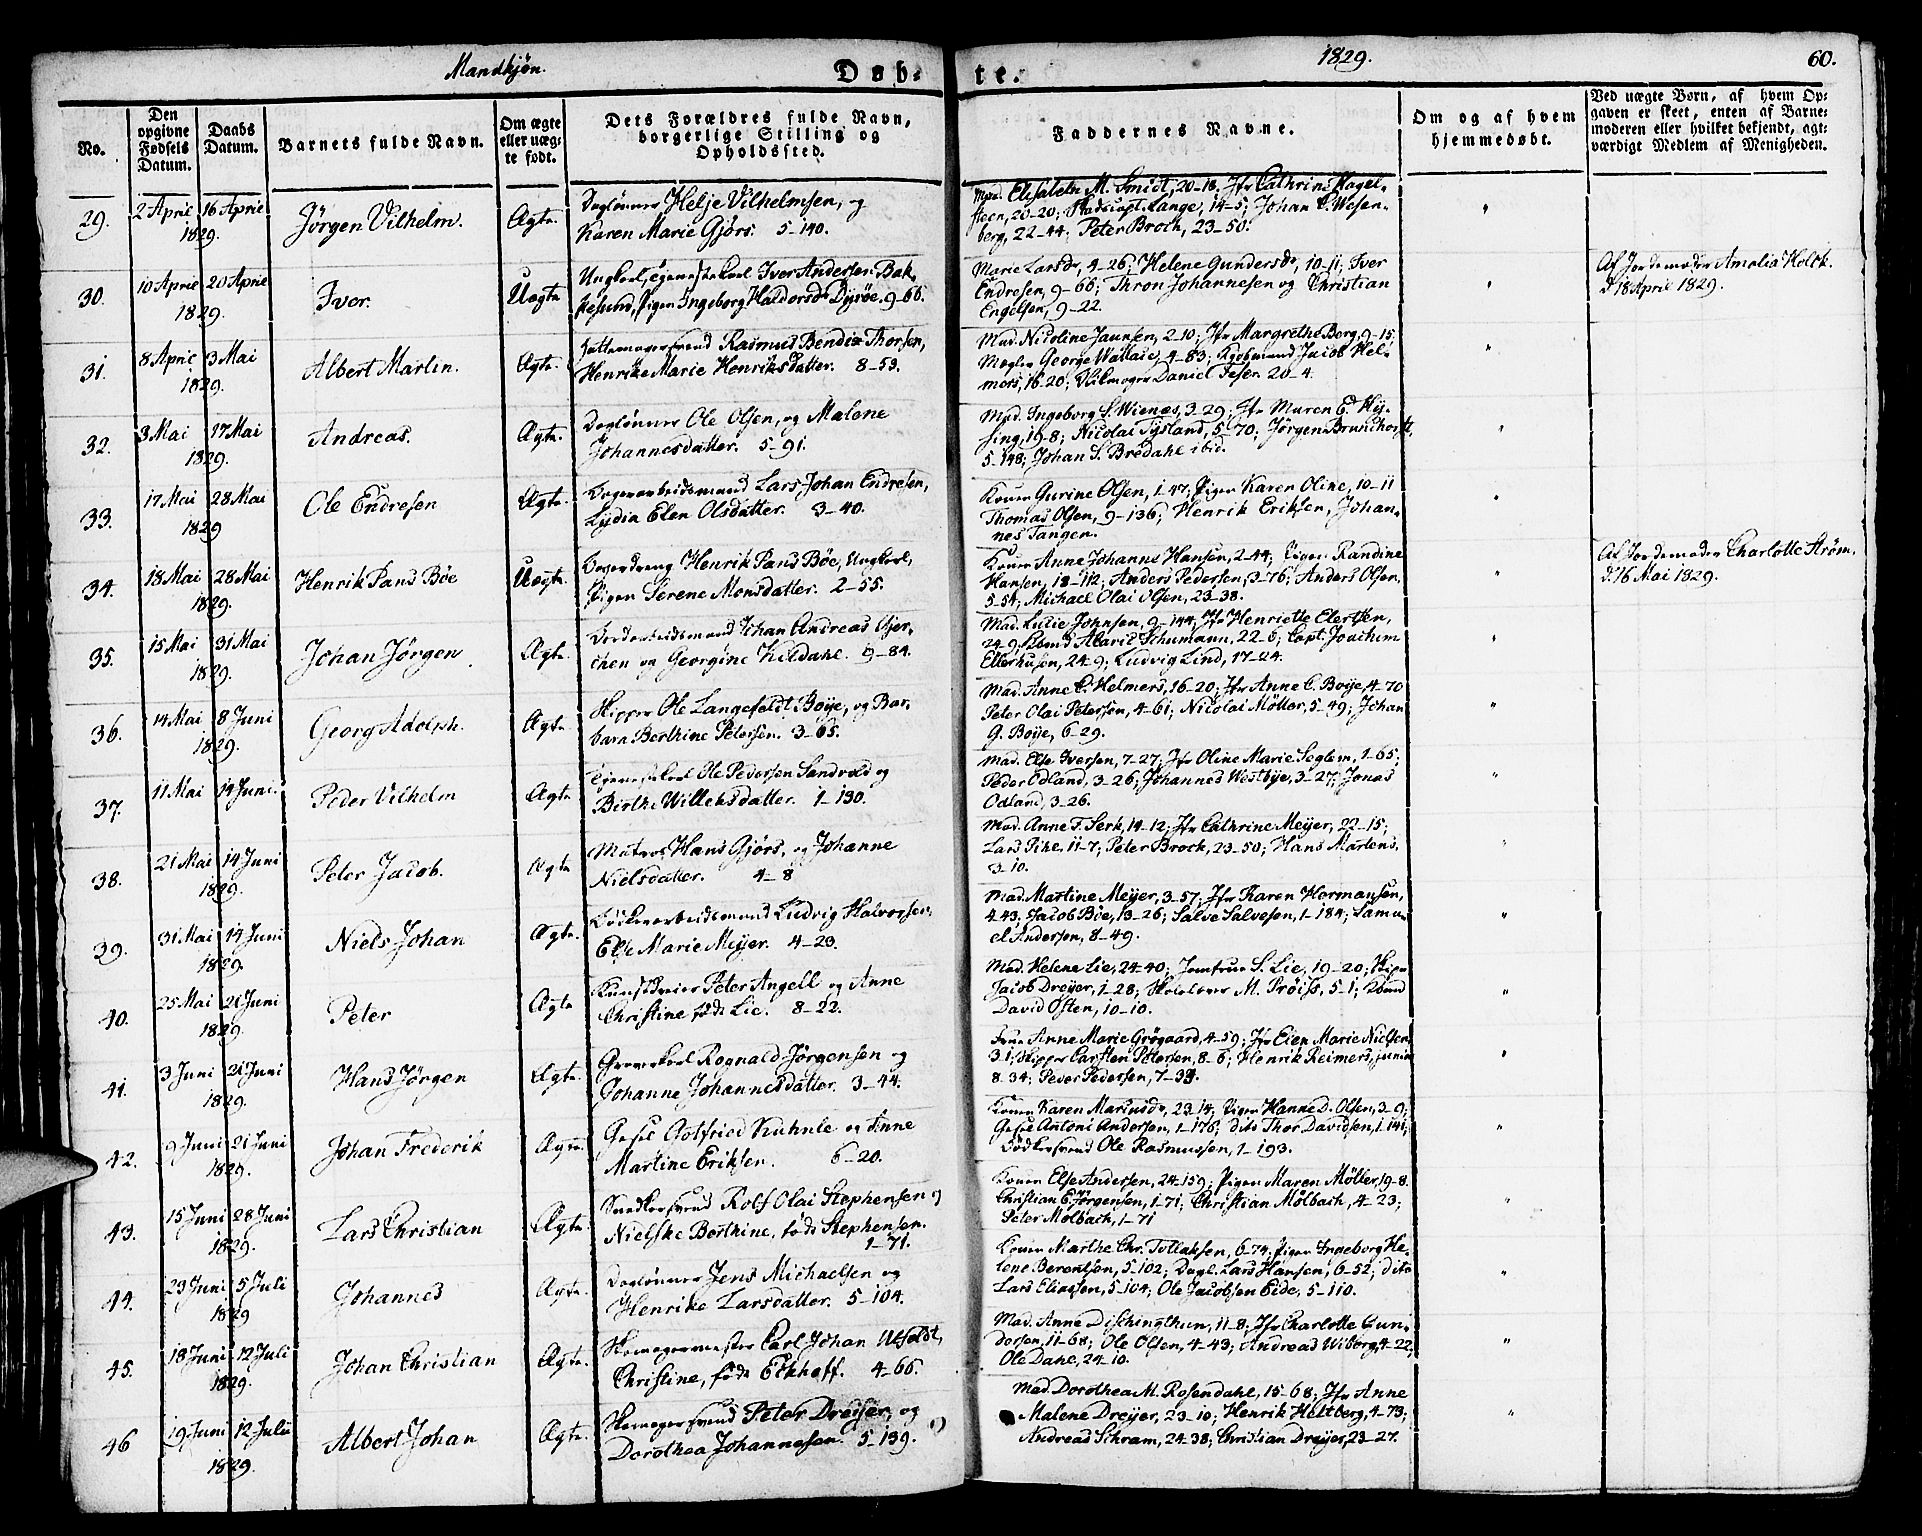 Mandkjøn.
Døb-
te.
1829.
60.
No.
Den opgivne Fødsels Datum.
Daabs Datum.
Barnets fulde Navn.
Om ægte eller uæg-te født.
Dets Forældres fulde Navn, borgerlige Stilling og Opholdssted.
Faddernes Navne.
Om og af hvem hjemmedøbt.
Ved uægte Børn, af hvem Op-gaven er skeet, enten af Barne-moderen eller hvilket bekjendt, agt-værdigt Medlem af Menigheden.
29. 2 April 16 April 1829. Jörgen Vilhelm. Ægte.
Daglønner Helje Vilhelmsen, og
Karen Marie Gjörs. 5-140.
Mad. Elisabeth M. Smidt, 20-18, Jfr Cathrine Hagel-
steen, 20-20; Stadscapt. Lange, 14-5; Johan C. Wesen-
berg, 22-44; Peter Broch, 23-50.
30. 10 April 20 April 1829. Iver. Uægte
Ungkarl, tjenestekarl Iver Andersen Bak-
kesund, Pigen Ingeborg Haldorsdr Dysøe. 9-66.
Marie Larsdr, 4-26; Helene Gundersdr, 10-11; Iver
Endresen, 9-66; Thron Johannesen og Christian
Engelsen, 9-22.
Af Jordemoder Amalia Holck.
d. 18 April 1829.
31. 8 April 3 Mai 1829. Albert Martin. Ægte.
Hattemagersvend Rasmus Bendix Thorsen,
Henrike Marie Henriksdatter. 8-59.
Mad. Nicoline Jaunsen, 2-10; Jfr Margrethe Berg, 9-15;
Mægler George Wallace, 4-83; Kjøbmand Jacob Hel-
mers, 16-20; Daniel Feser. 20-4.
32. 3 Mai 17 Mai 1829. Andreas. Ægte.
Daglønner Ole Olsen, og Malene
Johannesdatter. 5-91.
Mad. Ingeborg S. Wienæs, 3-29; Jfr Maren E. Hys-
sing, 19-8; Nicolai Tysland, 5-70; Jörgen Brunchorst,
5-148; Johan S. Bredahl ibid.
33. 17 Mai 28 Mai 1829 Ole Endresen Ægte.
Lars Johan Endresen,
Lydia Elen Olsdatter. 3-40.
Konen Gurine Olsen, 1-47; Pigen Karen Oline, 10-11
Thomas Olsen, 9-136; Henrik Eriksen, Johan-
nes Tangen.
34. 18 Mai 28 Mai 1829. Henrik Pans Böe Uægte.
Henrik Pans Böe, Ungkarl,
Pigen Serene Monsdatter. 2-55.
Konen Anne Johanne Hansen, 2-44; Pigen Randine
Hansen, 18-112; Anders Pedersen, 3-76; Anders Olsen,
5-54; Michael Olai Olsen, 23-38.
Af Jordemoder Charlotte Strøm.
d. 16 Mai 1829.
35. 15 Mai 31 Mai 1829. Johan Jörgen Ægte.
Johan Andreas Gjer-
chen og Georgine Kildahl. 9-84.
Mad. Lucie Johnsen, 9-144; Jfr Henriette Elertsen,
24-9; Alaric Schumann, 22-6; Capt. Joachim
Ellerhusen, 24-9; Ludvig Lind, 17-24.
36. 14 Mai 8 Juni 1829. Georg Adolph. Ægte.
Skipper Ole Langefeldt Boije, og Bar-
bara Berthine Petersen. 3-65.
Mad. Anne C. Helmers, 16-20; Jfr Anne C. Boije, 4-70
Peter Olai Petersen, 4-61; Nicolai Möller, 5-49; Johan
G. Boije, 6-29.
37. 11 Mai 14 Juni. Peder Vilhelm Ægte
Tjenestekarl Ole Pedersen Sandvold og
Birthe Willeksdatter. 1-130.
Mad. Else Iversen, 7-27; Jfr Oline Marie Seglem, 1-65;
Peder Odland, 3-26; Johannes Westbye, 3-27; Jonas
Odland, 3-26.
38. 21 Mai 14 Juni 1829. Peter Jacob. Ægte
Matros Hans Gjörs, og Johanne
Nielsdatter. 4-8
Mad. Anne F. Serk, 14-12; Jfr Cathrine Meijer, 22-15;
Lars Pihl, 11-7; Peter Brock, 23-50; Hans Mårtens,
3-10.
39. 31 Mai 14 Juni 1829. Niels Johan Ægte.
Ludvig Halvorsen,
Else Marie Meijer. 4-23.
Mad. Martine Meijer, 3-57; Jfr Karen Hermansen,
4-43; Jacob Böe, 13-26; Salve Salvesen, 1-184; Samu-
el Andersen, 8-49.
40. 25 Mai 21 Juni 1829. Peter Ægte
Kunstdreier Peter Angell og Anne
Christine föd Lie. 8-22.
Mad. Helene Lie, 24-40; Jomfrue S. Lie, 19-20; Skipr
Jacob Dreijer, 1-28; Skolelærer M. Pröiss, 5-1;
David Osten, 10-10.
41. 3 Juni 21 Juni 1829. Hans Jörgen Ægte.
Graverkarl Rognald Jörgensen og
Johanne Johannesdatter. 3-44.
Frue Anne Marie Grögaard, 4-59; Jfr Elen Marie Nielsen,
3-1; Skipper Carsten Petersen, 8-6; Henrik Reimers, junior
8-34; Peder Pedersen, 7-34.
42. 9 Juni 21 Juni 1829. Johan Frederik Ægte.
Gesel Gotfried Kuhnle og Anne
Martine Eriksen. 6-20.
Konen Karen Mariusdr, 23-14; Pigen Hanne D. Olsen, 3-9;
Gesel Antoni Andersen, 1-176; dito Thor Davidsen, 1-141;
Bødkersvend Ole Rasmussen, 1-193.
43. 15 Juni 28 Juni 1829. Lars Christian Ægte.
Snedkersvend Rolf Olai Stephensen og
Nielske Berthine, föds Stephensen.
1-71.
Konen Else Andersen, 24-159; Pigen Maren Möller, 19-8.
Christian E. Jörgensen, 1-71; Christian Molbach, 4-23;
Peter Molbach, 1-71
44. 23 Juni 5 Juli 1829 Johannes Ægte.
Daglønner Jens Michaelsen og
Henrike Larsdatter. 5-104.
Konen Marthe Chr. Tollaksen, 6-74; Pigen Ingeborg He-
lene Berentsen, 5-102; Dagl. Lars Hansen, 6-52; dito
Lars Eliassen, 5-104; Ole Jacobsen Eide, 5-110.
45. 18 Juni 12 Juli 1829. Johan Christian Ægte.
Skomagermester Carl Johan Utfoldt,
Christine, föds Eckhoff. 4-66.
Mad. Anne Dischingthun, 11-8; Jfr Charlotte Gun-
dersen, 11-68; Ole Olsen, 4-43; Andreas Wiberg, 4-22;
Ole Dahl, 24-10.
46 19 Juni 12 Juli 1829. Albert Johan Ægte.
Skomagersvend Peter Dreijer, og
Dorothea Johannesen. 5-139.
Mad. Dorothea M. Rosendahl, 15-68; Jfr Anne
Malene Dreijer, 23-10; Henrik Heltberg, 4-73;
Andreas Schram, 24-38; Christian Dreijer, 23-27.